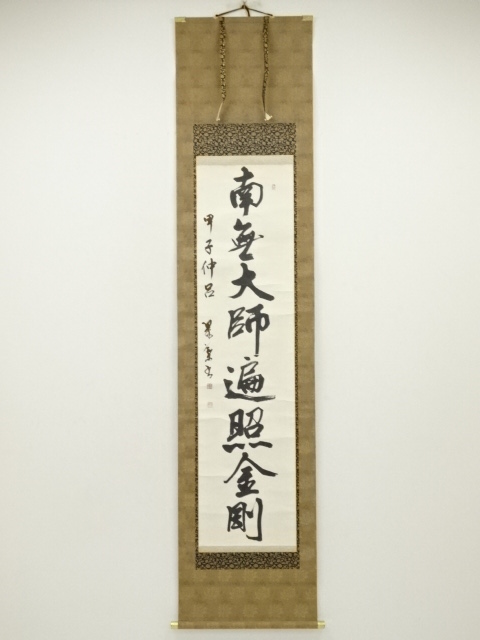 南無大師遍照金剛
甲子仲呂